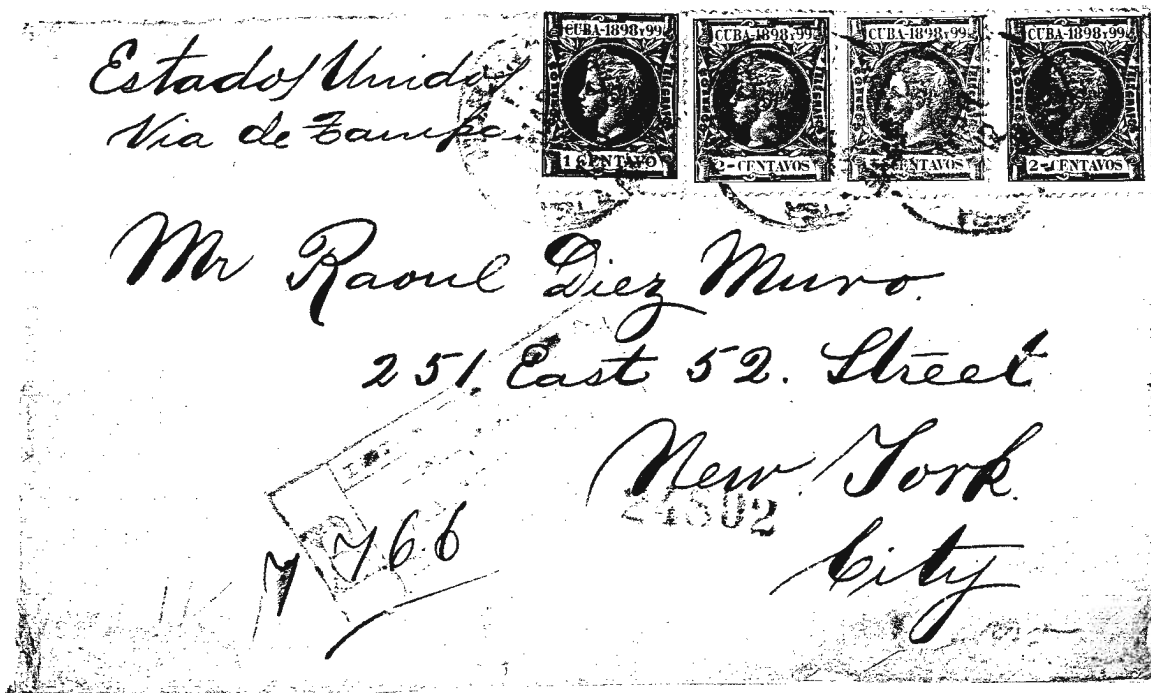 Estados Unidos
Via de Tampa.
CUBA-1898Y99
1 CENTAVO
CUBA-1898Y99
2-CENTAVOS
CUBA-1898Y99
CENTAVOS
CUBA-1898Y99
2-CENTAVOS
Mr Raoul Diez Muro.
251. East 52. Street
New York.
24802
City
7766